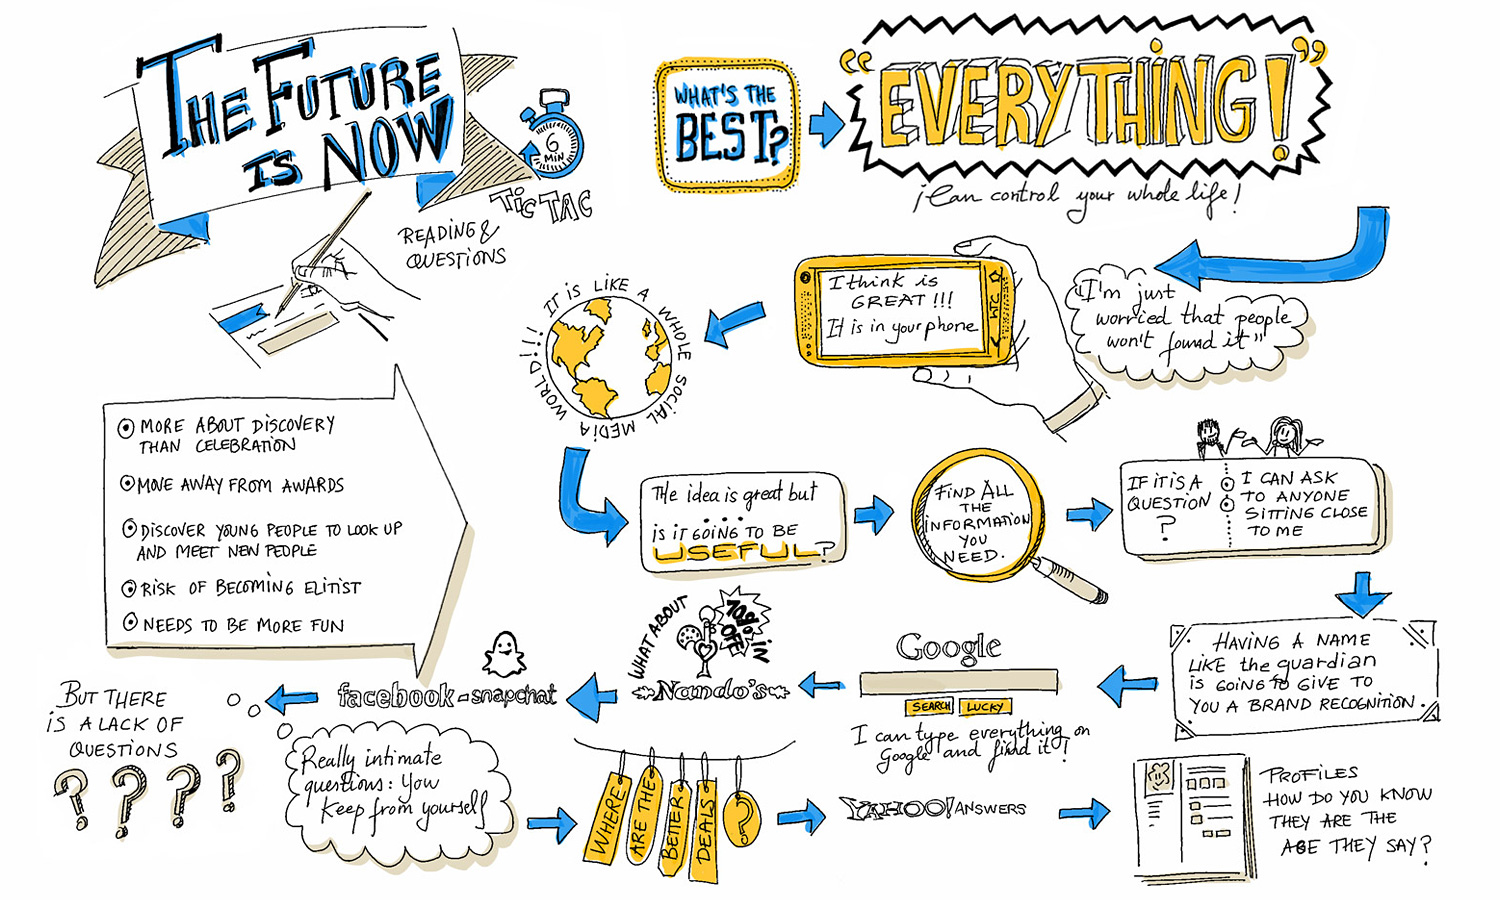 THE FUTURE
IS NOW
6
MIN
TIC TAC
READING &
QUESTIONS
WHAT'S THE
BEST?
"EVERYTHING!"
¡Can control your whole life!
"I'm just
worried that people
won't found it"
I think is
GREAT!!!
It is in your phone
HTC
IT IS LIKE A WHOLE SOCIAL MEDIA WORLD!!!
MORE ABOUT DISCOVERY
THAN CELEBRATION
MOVE AWAY FROM AWARDS
DISCOVER YOUNG PEOPLE TO LOOK UP
AND MEET NEW PEOPLE
RISK OF BECOMING ELITIST
NEEDS TO BE MORE FUN
The idea is great but
...
IS IT GOING TO BE
USEFUL?
FIND ALL
THE
INFORMATION
YOU
NEED.
IF IT IS A
QUESTION
?
I CAN ASK
TO ANYONE
SITTING CLOSE
TO ME
HAVING A NAME
LIKE the guardian
IS GOING TO GIVE TO
YOU A BRAND RECOGNITION.
Google
SEARCH
LUCKY
I can type everything on
Google and find it!
WHAT ABOUT
70% IN
OFF
Nando's
facebook - snapchat
BUT THERE
IS A LACK OF
QUESTIONS
? ? ? ?
Really intimate
questions: You
Keep from yourself
WHERE
ARE THE
BETTER
DEALS
?
YAHOO! ANSWERS
PROFILES
HOW DO YOU KNOW
THEY ARE THE
AGE THEY SAY?